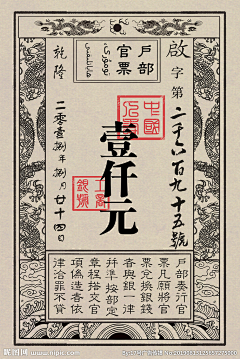 戶部官票
啟字第二千六百九十五號
壹仟元
乾隆
二零壹捌年捌月廿十四日
戶部奏行官
票凡願將官
票兌換銀錢
者與銀一律
并準按部定
章程搭交官
項偽造者依
律治罪不貸